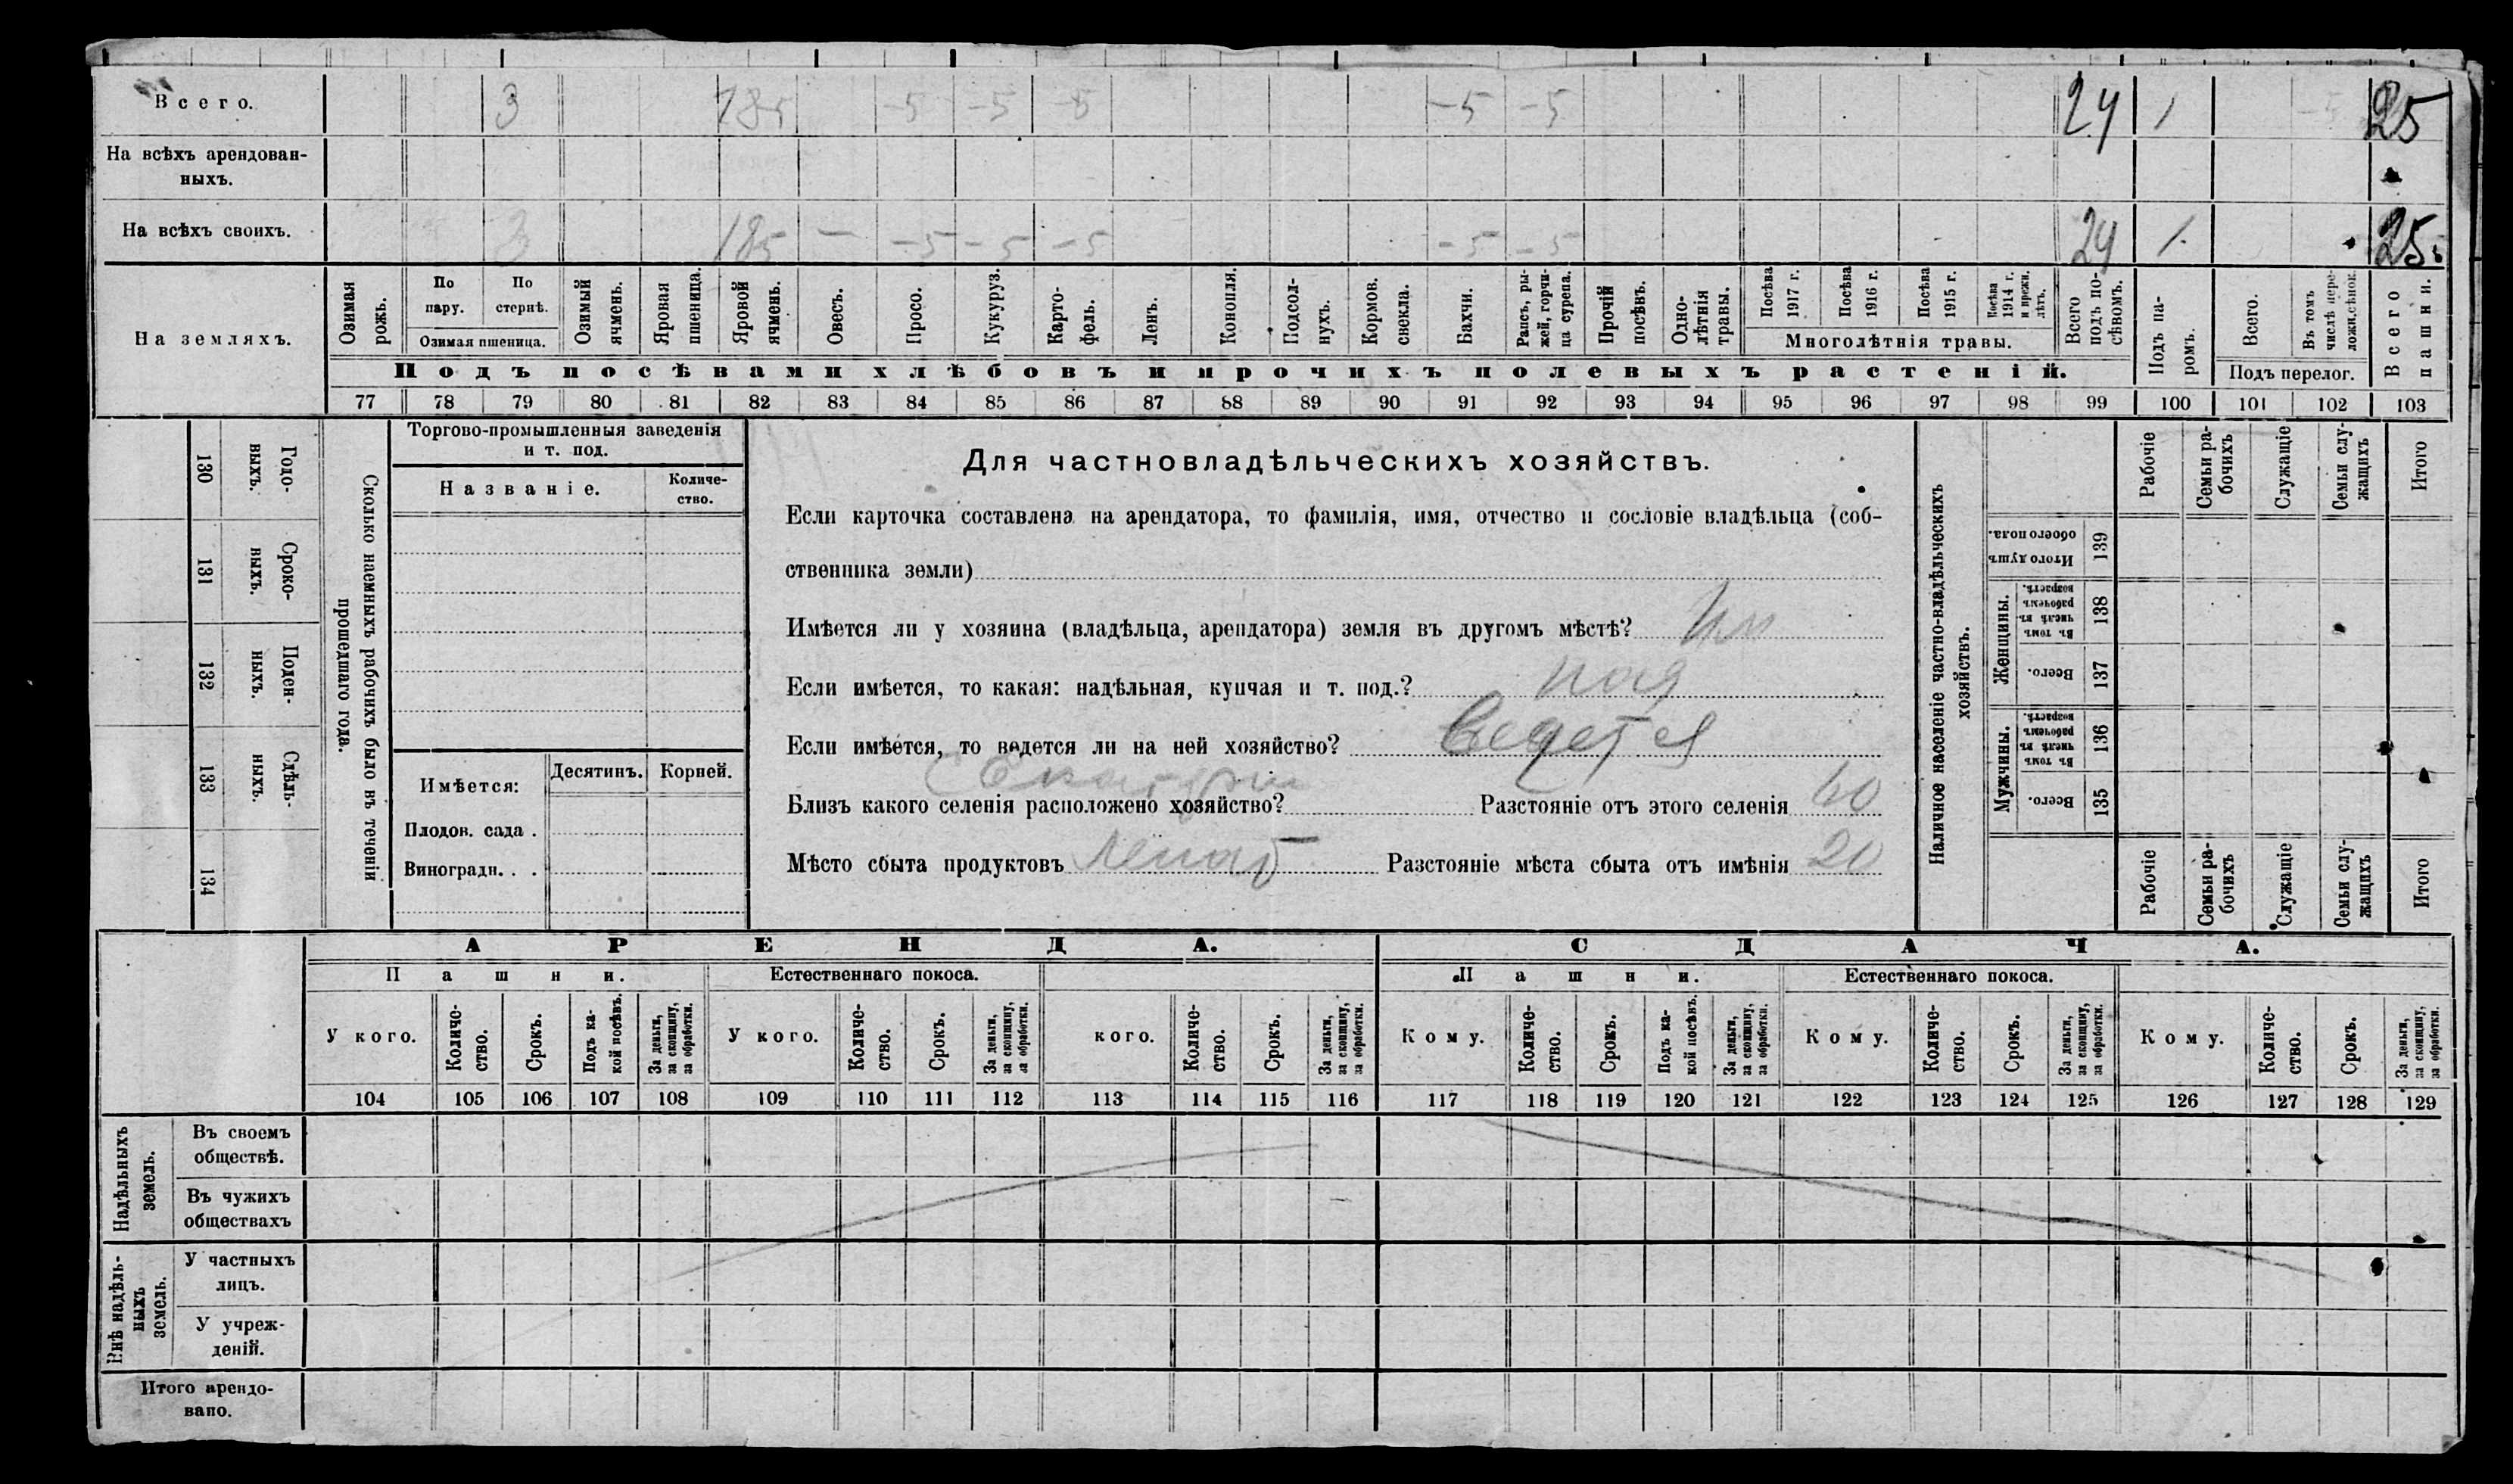 Всего. 3 185 -5 -5 -5 -5 -5 24 1 25
На всѣхъ арендован-
ныхъ.
На всѣхъ своихъ. 3 185 — -5 -5 -5 -5 -5 24 1. 25
На земляхъ.
Озимая рожь.
По пару.
По стернѣ.
Озимая пшеница.
Озимый ячмень.
Яровая пшеница.
Яровой ячмень.
Овесъ.
Просо.
Кукуруз.
Карто-
фель.
Ленъ.
Конопля.
Подсол-
нухъ.
Кормов. свекла.
Бахчи.
Рапсъ, ры-
жей, горчи-
ца сурепа.
Прочій посѣвъ.
Одно-
лѣтнія травы.
Посѣва 1917 г.
Посѣва 1916 г.
Посѣва 1915 г.
Посѣва 1914 г. и прежн. лѣтъ.
Многолѣтнія травы.
Всего подъ по-
сѣвомъ.
Подъ па-
ромъ.
Всего.
Въ томъ числѣ пере-
ложн. сѣнок.
Подъ перелог.
Всего пашни.
Подъ посѣвами хлѣбовъ и прочихъ полевыхъ растеній.
77 78 79 80 81 82 83 84 85 86 87 88 89 90 91 92 93 94 95 96 97 98 99 100 101 102 103
130 Годо-
выхъ.
131 Сроко-
выхъ.
132 Поден-
ныхъ.
133 Сдѣль-
ныхъ.
134
Сколько наемныхъ рабочихъ было въ теченіи
прошедшаго года.
Торгово-промышленныя заведенія
и т. под.
Названіе.
Количе-
ство.
Имѣется: Десятинъ. Корней.
Плодов. сада .
Виноградн. . .
Для частновладѣльческихъ хозяйствъ.
Если карточка составлена на арендатора, то фамилія, имя, отчество и сословіе владѣльца (соб-
ственника земли)
Имѣется ли у хозяина (владѣльца, арендатора) земля въ другомъ мѣстѣ?
Если имѣется, то какая: надѣльная, купчая и т. под.? над
Если имѣется, то ведется ли на ней хозяйство? ведется
Близъ какого селенія расположено хозяйство? Разстояніе отъ этого селенія 60
Мѣсто сбыта продуктовъ Разстояніе мѣста сбыта отъ имѣнія 20
Наличное населеніе частно-владѣльческихъ
хозяйствъ.
Рабочіе
Семьи ра-
бочихъ
Служащіе
Семьи слу-
жащихъ
Итого
Итого душъ обоего пола. 139
Женщины.
Въ томъ числѣ въ рабочемъ возрастѣ. 138
Всего. 137
Мужчины.
Въ томъ числѣ въ рабочемъ возрастѣ. 136
Всего. 135
Рабочіе
Семьи ра-
бочихъ
Служащіе
Семьи слу-
жащихъ
Итого
АРЕНДА. СДАЧА.
Пашни. Естественнаго покоса. Пашни. Естественнаго покоса.
У кого.
Количе-
ство.
Срокъ.
Подъ ка-
кой посѣвъ.
За деньги,
за скопщину,
за обработки.
У кого.
Количе-
ство.
Срокъ.
За деньги,
за скопщину,
за обработки.
кого.
Количе-
ство.
Срокъ.
За деньги,
за скопщину,
за обработки.
Кому.
Количе-
ство.
Срокъ.
Подъ ка-
кой посѣвъ.
За деньги,
за скопщину,
за обработки.
Кому.
Количе-
ство.
Срокъ.
За деньги,
за скопщину,
за обработки.
Кому.
Количе-
ство.
Срокъ.
За деньги,
за скопщину,
за обработки.
104 105 106 107 108 109 110 111 112 113 114 115 116 117 118 119 120 121 122 123 124 125 126 127 128 129
Надѣльныхъ
земель.
Въ своемъ
обществѣ.
Въ чужихъ
обществахъ
Внѣ надѣль-
ныхъ
земель.
У частныхъ
лицъ.
У учреж-
деній.
Итого арендо-
вано.